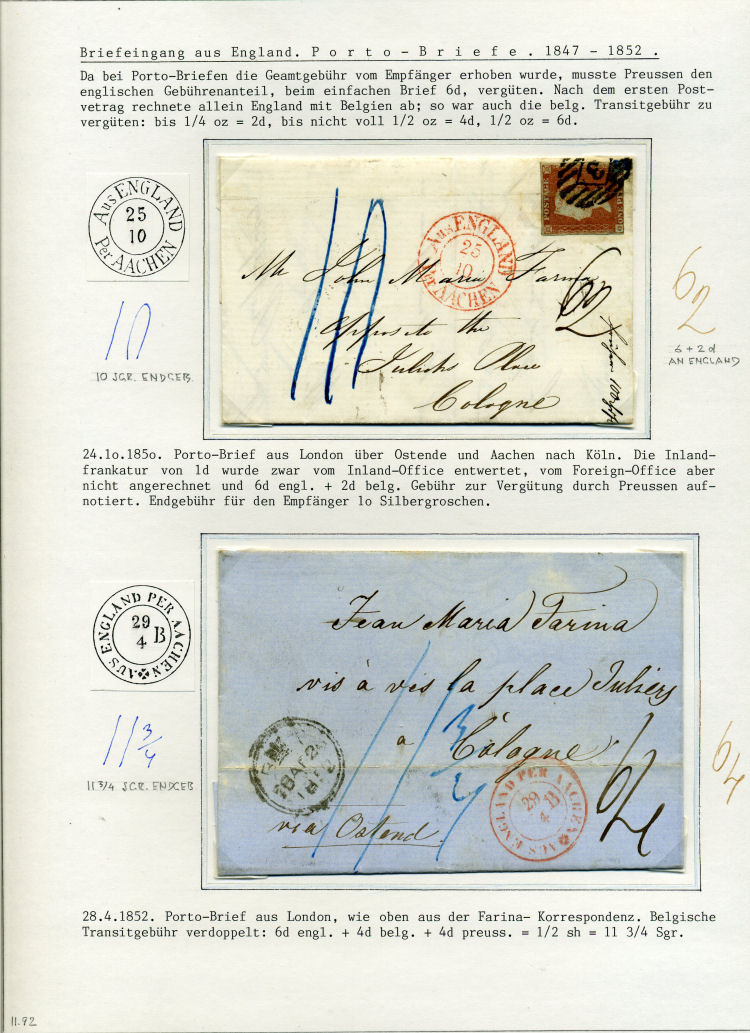 Briefeingang aus England. P o r t o - B r i e f e . 1847 - 1852 .
Da bei Porto-Briefen die Geamtgebühr vom Empfänger erhoben wurde, musste Preussen den
englischen Gebührenanteil, beim einfachen Brief 6d, vergüten. Nach dem ersten Post-
vetrag rechnete allein England mit Belgien ab; so war auch die belg. Transitgebühr zu
vergüten: bis 1/4 oz = 2d, bis nicht voll 1/2 oz = 4d, 1/2 oz = 6d.
Aus ENGLAND
25
10
Per AACHEN
10
10 SGR. ENDGEB.
POSTAGE
Aus ENGLAND
25
10
Per AACHEN
10
Mr John Maria Farina
opposite the
Julichs Place
Cologne
62
62
6 + 2 d
AN ENGLAND
24.1o.185o. Porto-Brief aus London über Ostende und Aachen nach Köln. Die Inland-
frankatur von 1d wurde zwar vom Inland-Office entwertet, vom Foreign-Office aber
nicht angerechnet und 6d engl. + 2d belg. Gebühr zur Vergütung durch Preussen auf-
notiert. Endgebühr für den Empfänger 1o Silbergroschen.
AUS ENGLAND PER AACHEN
29
4 B
11 3/4
11 3/4 SGR. ENDGEB
Jean Maria Farina
vis à vis la place Juliers
a Cologne
via Ostend.
11 3/4
AUS ENGLAND PER AACHEN
29
4 B
64
64
28.4.1852. Porto-Brief aus London, wie oben aus der Farina- Korrespondenz. Belgische
Transitgebühr verdoppelt: 6d engl. + 4d belg. + 4d preuss. = 1/2 sh = 11 3/4 Sgr.
11.92